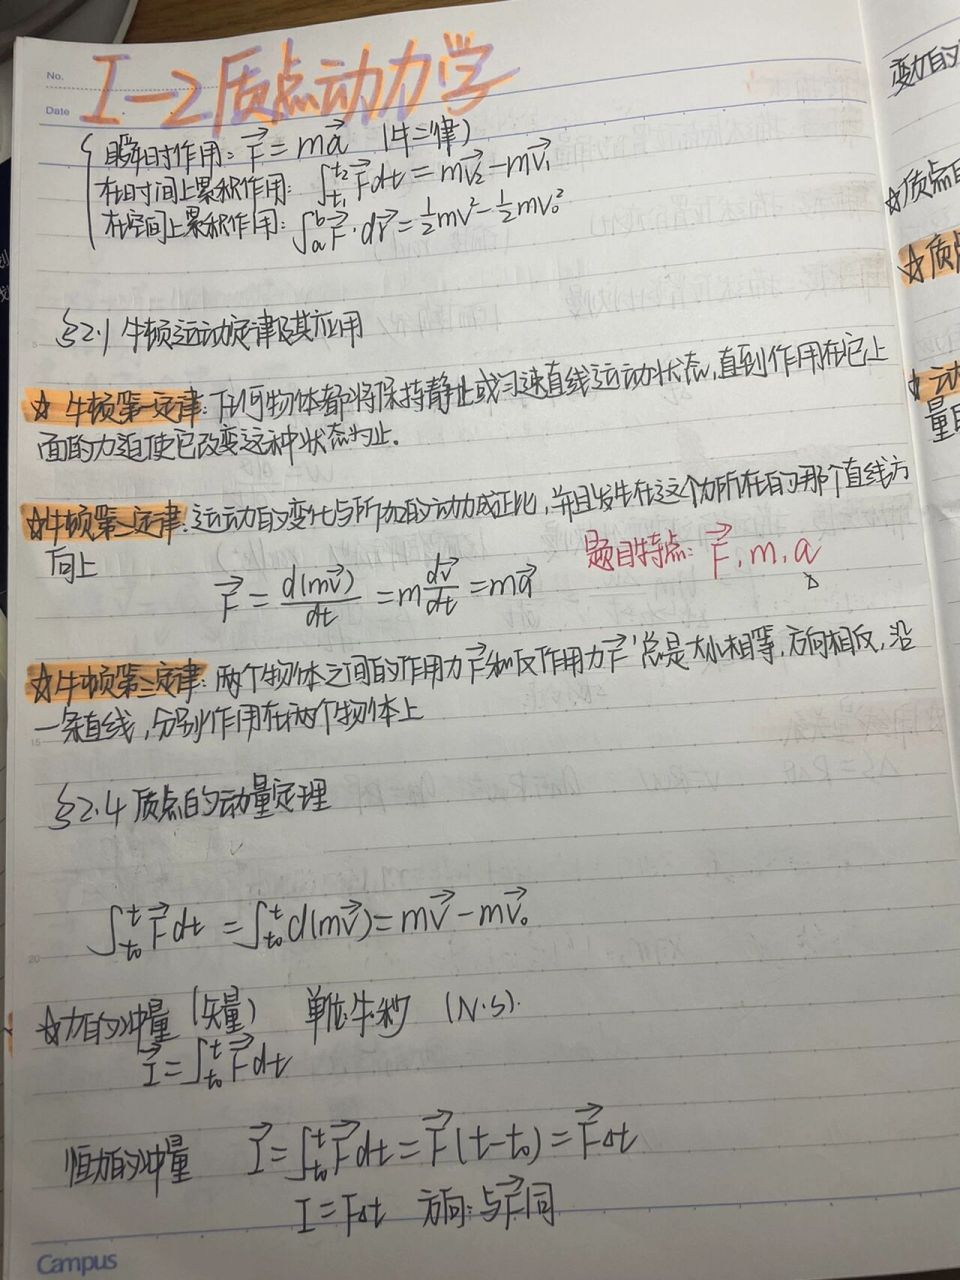 No.
Date
I-2质点动力学
瞬时作用: F⃗ = ma⃗ (牛二律)
在时间上累积作用: ∫_{t₁}^{t₂} F⃗dt = mv⃗₂ - mv⃗₁
在空间上累积作用: ∫_a^b F⃗·dr⃗ = ½mv² - ½mv₀²
§2.1 牛顿运动定律及其应用
☆ 牛顿第一定律: 任何物体都将保持静止或匀速直线运动状态,直到作用在它上
面的力迫使它改变这种状态为止.
☆牛顿第二定律: 运动的变化与所加的动力成正比,并且发生在这个力所在的那个直线方
向上
题目特点: F⃗, m, a
F⃗ = d(mv⃗)/dt = m dv⃗/dt = ma⃗
☆牛顿第三定律: 两个物体之间的作用力F⃗和反作用力F⃗'总是大小相等,方向相反,沿
一条直线,分别作用在两个物体上
§2.4 质点的动量定理
∫_{t₀}^{t} F⃗dt = ∫_{t₀}^{t} d(mv⃗) = mv⃗ - mv⃗₀
☆力的冲量 (矢量) 单位:牛·秒 (N·S).
I⃗ = ∫_{t₀}^{t} F⃗dt
恒力的冲量 I⃗ = ∫_{t₀}^{t} F⃗dt = F⃗(t-t₀) = F⃗Δt
I = FΔt 方向:与F⃗同
Campus
变力的
☆质点
☆质点
☆动
量